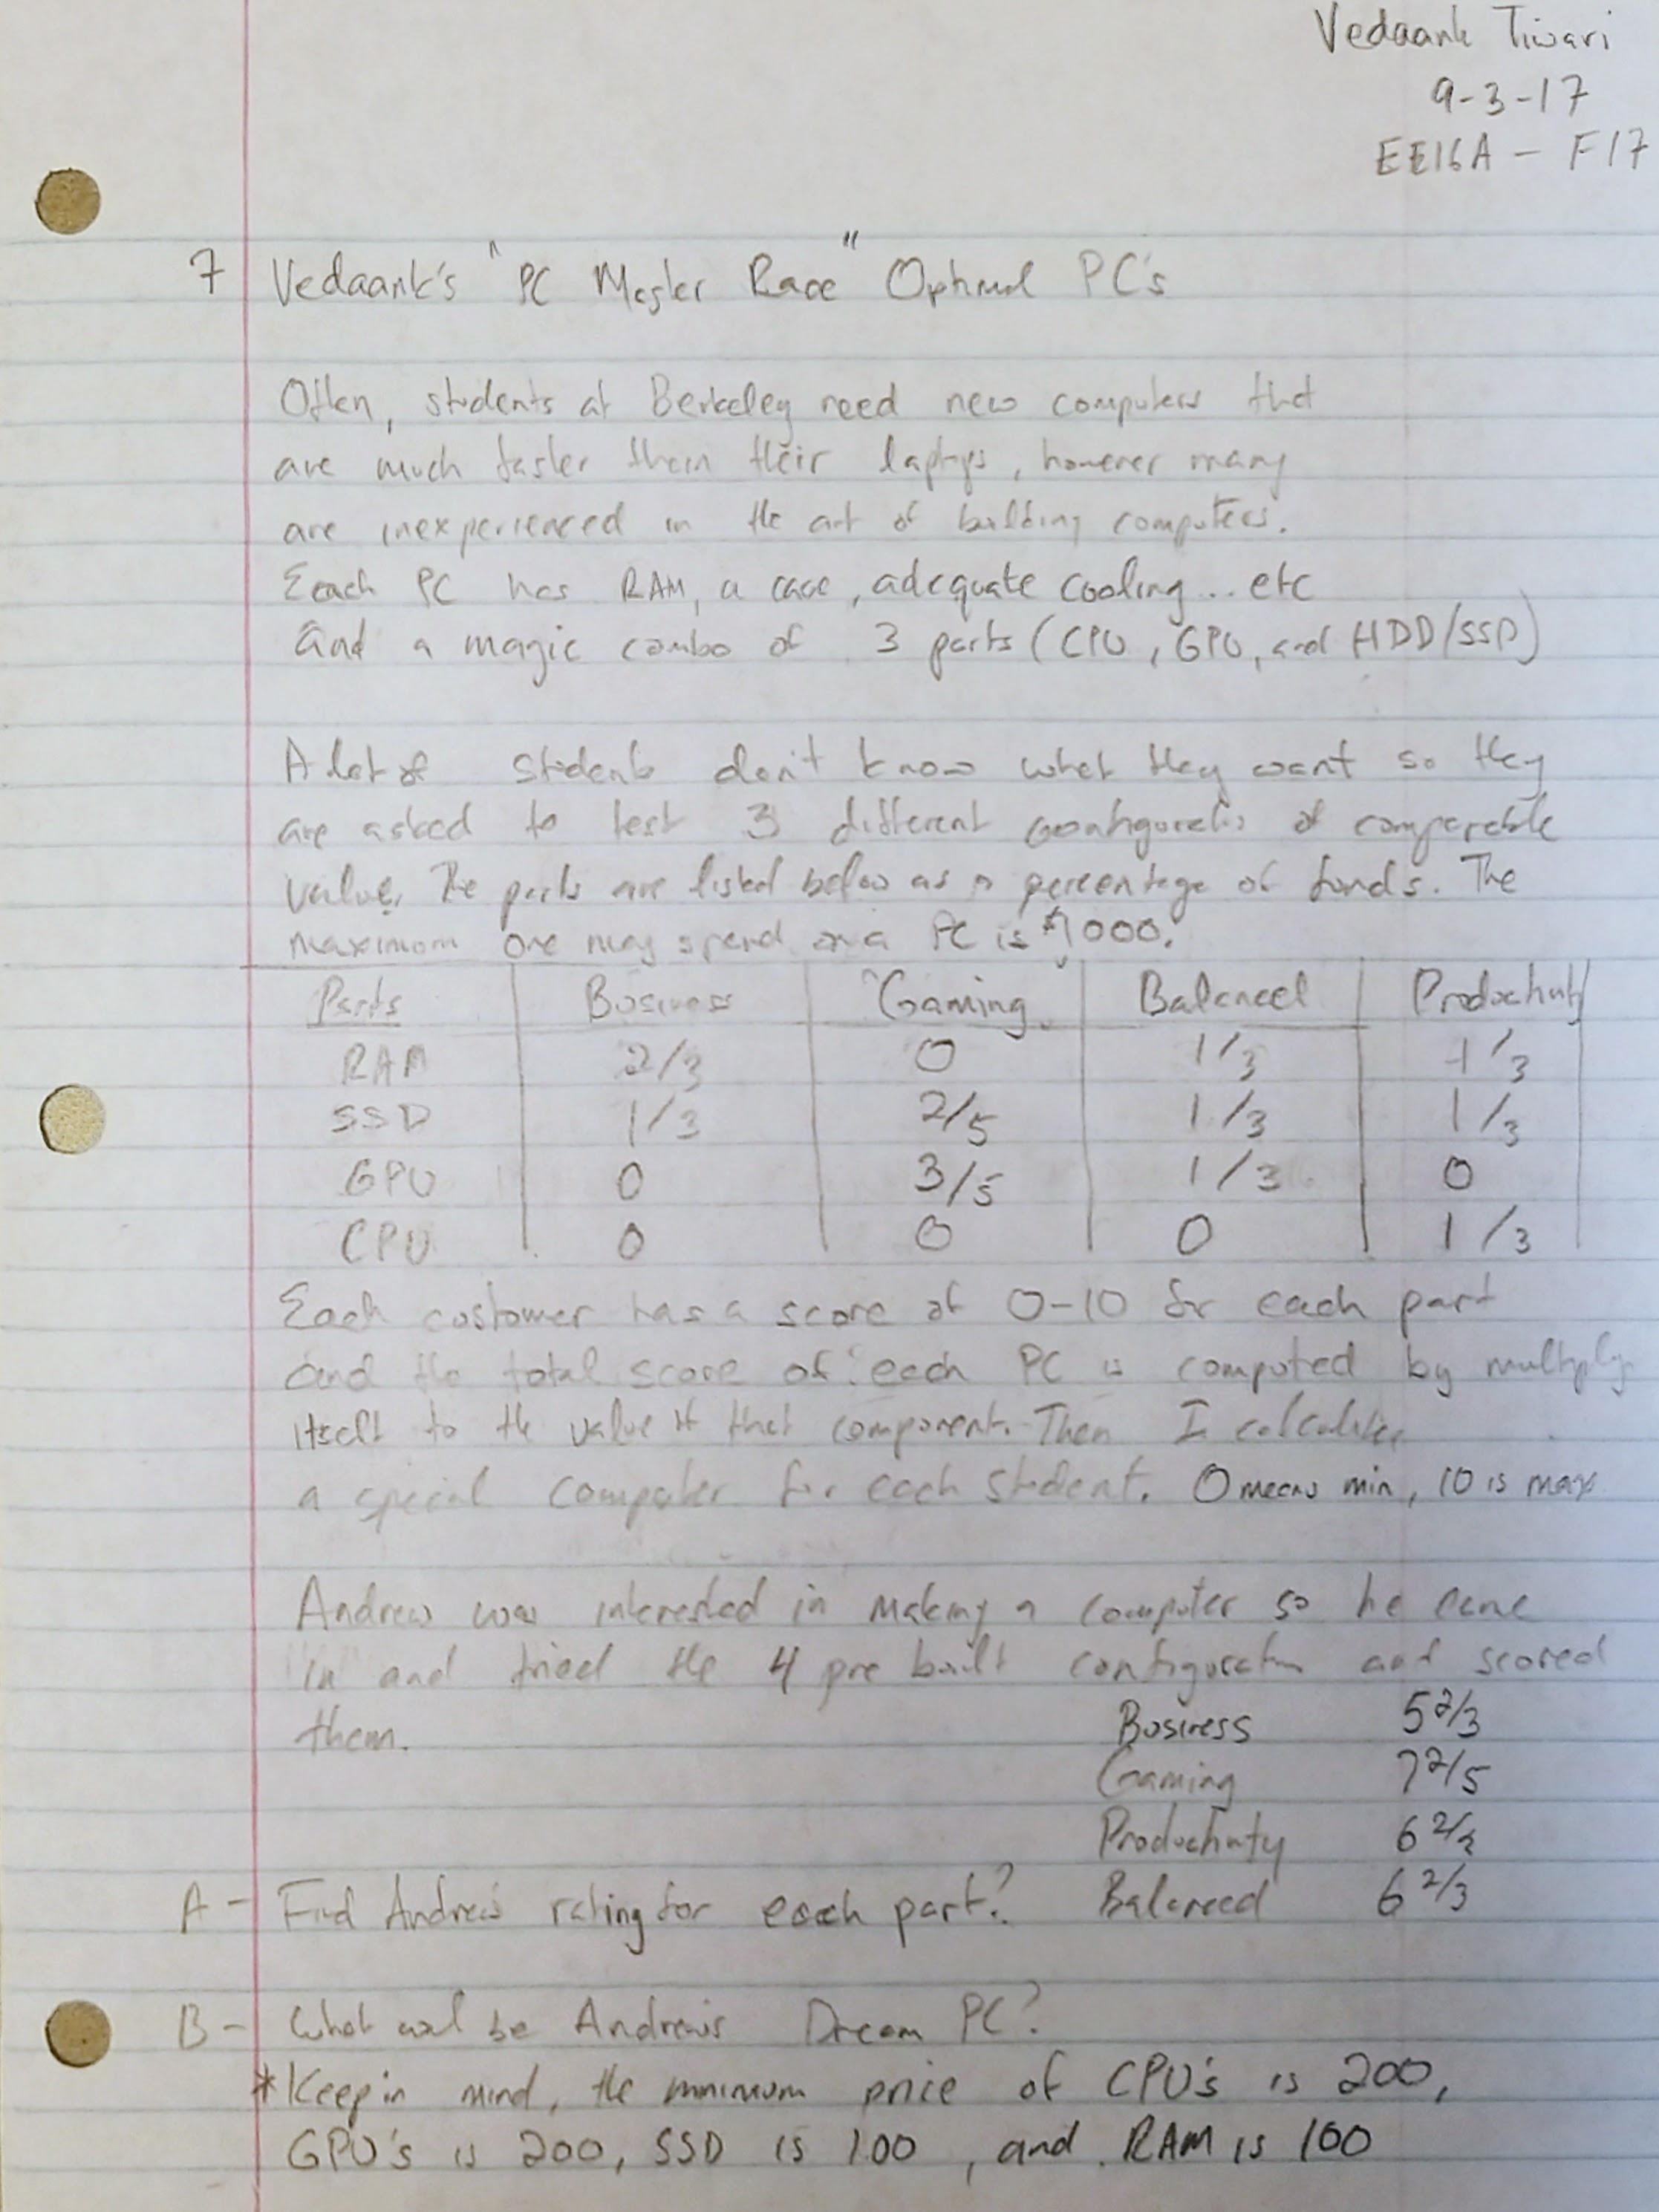 Vedaank Tiwari
9-3-17
EE16A - F17
7 Vedaank's "PC Master Race" Optimal PC's
Often, students at Berkeley need new computers that
are much faster than their laptops, however many
are inexperienced in the art of building computers.
Each PC has RAM, a case, adequate cooling... etc
and a magic combo of 3 parts (CPU, GPU, and HDD/SSD)
A lot of students don't know what they want so they
are asked to test 3 different configuratis of comparable
value. The parts are listed below as a percentage of funds. The
maximum one may spend on a PC is $1000.
Parts Business Gaming Balanced Productivity
RAM 2/3 0 1/3 1/3
SSD 1/3 2/5 1/3 1/3
GPU 0 3/5 1/3 0
CPU 0 0 0 1/3
Each customer has a score of 0-10 for each part
and the total score of each PC is computed by multiply
itself to the value of that component. Then I calculate
a special computer for each student. 0 means min, 10 is max
Andrew was interested in making a computer so he came
in and tried the 4 pre built configuration and scored
them.
Business 5 2/3
Gaming 7 2/5
Productivity 6 2/3
A - Find Andrew's rating for each part? Balanced 6 2/3
B - What will be Andrew's Dream PC?
* Keep in mind, the minimum price of CPU's is 200,
GPU's is 200, SSD is 100, and RAM is 100